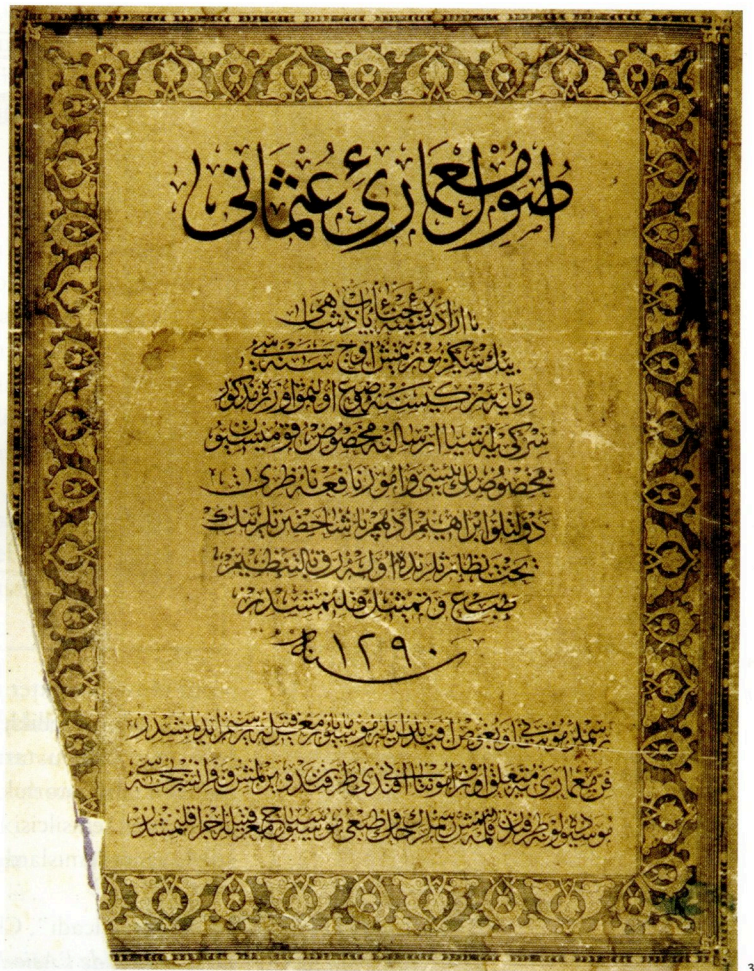 اصول معمارئ عثمانی
با ارادۀ سنیۀ جناب پادشاهی
بیك سكز یوز یتمش اوچ سنه سی
ویانه سرکیسنه وضع اولنمق اوزره مذکور
سرکی یه اشیا ارسالنه مخصوص قومیسیون
مخصوصك رئیسی و امور نافعه ناظری
دولتلو ابراهیم ادهم پاشا حضرتلرینك
تحت نظارتلرنده اوله رق بالتنظیم
طبع و تمثیل قلنمشدر
سنه ١٢٩٠
رسملر مونتانی و بوغوص افندیلر ایله موسیو معرفتیله رسم ایدلمشدر
فن معماری یه متعلق اوراق مونتانی افندی طرفندن ویرلمش و فرانسزجه سی
موسیو دولونه طرفندن قلمه النمش حك و طبعی موسیو معرفتیله اجرا قلنمشدر
3